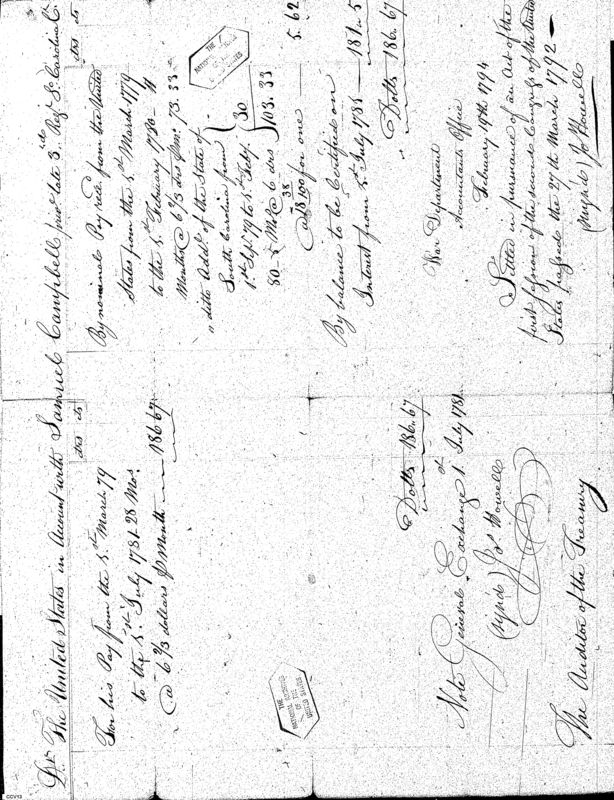 Dr. The United States in Account with Samuel Campbell priv.t late 3.d Reg.t So. Carolina Cr.
drs cts
For his Pay from the 5.th March 79
to the 5.th July 1781 28 Mos.
@ 6 2/3 dollars ⅌ Month 186 67
Dolls 186.67
Note General Exchange 1 July 1781
(Signed) Jos Howell
The Auditor of the Treasury
drs cts
By nominal Pay recd. from the United
States from the 5.th March 1779
to the 5.th February 1780 — 11
Months @ 6 2/3 drs ⅌ mo. 73.33
ditto Add.l of the State of
South Carolina from
1st Sept. 79 to 5.th Feby. 30
80 - 5 Mos @ 6 drs 103.33
38
100 for one 5.62
By balance to be Certified on
Interest from 5.th July 1785 181.05
Dolls 186.67
War Department
Accountants Office
February 19th 1794
Settled in pursuance of an Act of the
first Session of the second Congress of the United
States passed the 27th March 1792
(Signed) Jo Howell
THE
NATIONAL ARCHIVES
OF THE
UNITED STATES
THE
NATIONAL ARCHIVES
OF THE
UNITED STATES
CCV13